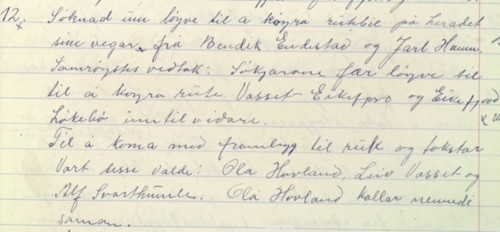 12. Søknad um løyve til å køyra rutebil på heradet
sine vegar, frå Bendik Endestad og Jarl Hamn.
Samrøystes vedtak: Søkjarane fær løyve til
til å køyra rute Vasset Eikefjord og Eikefjord
Løkebø inntil vidare.
Til å koma med framlegg til rute og takstar
Vart desse valde: Ola Hovland, Leiv Vasset og
Alf Svarthumle. Ola Hovland kallar nemnde
saman.